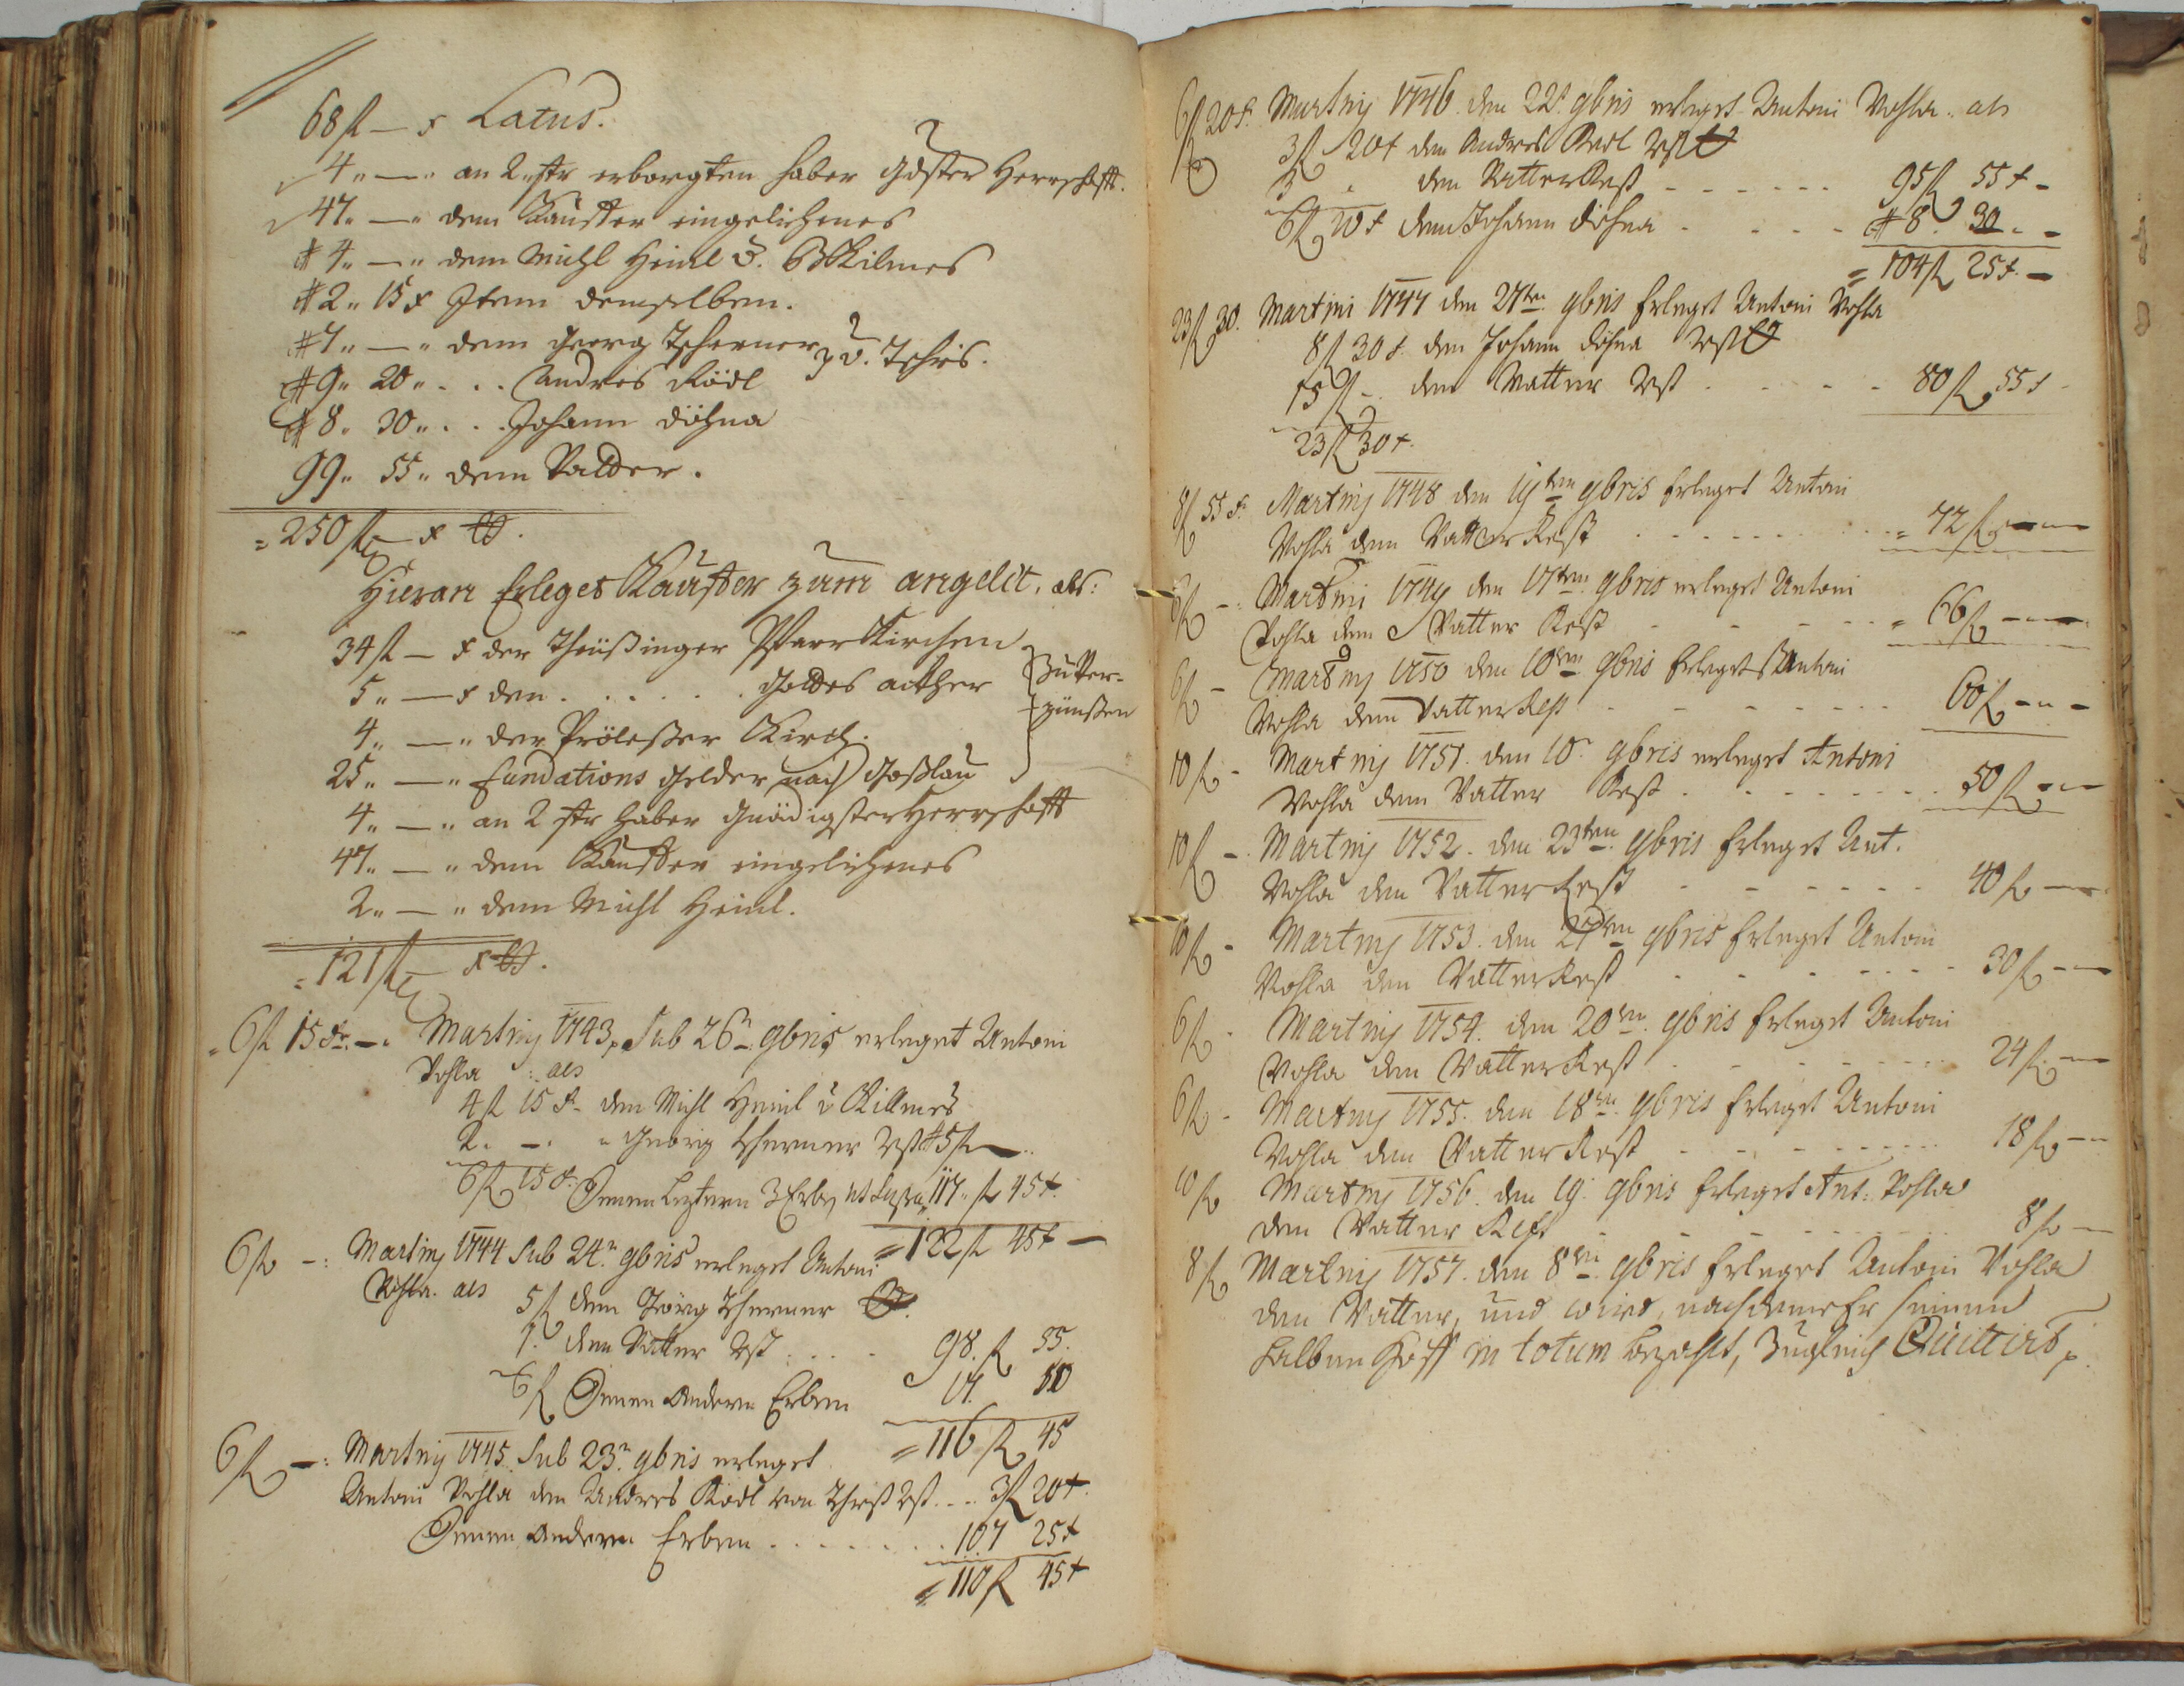 68 fl — x Latus.
4 „ — „ an 2 str erborgten haber gdster Herrschafft.
47 „ — „ dem Kauffer eingelichenes
# 4 „ — „ dem Michl Heinl v. Kilmes
# 2 „ 15 x Item demselben.
# 7 „ — „ dem Georg Tscherner
# 9 „ 20 „ . . . Andres Rödl } v. Tehris.
# 8 „ 30 „ . . . Johann döhna
99 „ 55 „ dem Vatter.
= 250 fl — x
Hieran Erleget Kauffer zum angeldt, als:
34 fl — x der Theüßinger Pfarr Kirchen
5 „ — x den . . . . . . Gottes acther } Zu Ver-
4 „ — „ der Pröleßer Kirch. } zünßen
25 „ — „ fundations gelder nach Goßlau
4 „ — „ an 2 str haber gnädigster Herrschafft
47 „ — „ dem Kauffer eingelichenes
2 „ — „ dem Michl Heinl.
= 121 fl — x
6 fl 15 xr. — . Martiny 1743, Sub 26ⁿ 9bris erleget Antoni
Pohla : als
4 fl 15 x dem Michl Heinl v Killmes
2 . — . „ Georg Tscherner Rst # 5 fl —
6 fl 15 x. Denen leztern 3 Erb. 117 „ fl 45 x.
= 122 fl 45 x —
6 fl — : Martiny 1744 Sub 24.ⁿ 9bris erleget Antoni
Pohla. als 5 fl dem Görg Tscherner
1 . dem Vatter Rst . . . . 98. fl 55.
6 fl Denen Andern Erben 17. 50
= 116 fl 45
6 fl — : Martiny 1745. Sub 23.ⁿ 9bris erleget
Antoni Pohla dem Andres Rödl von Thriß Rst . . . . 3 fl 20 x.
Denen Andern Erben . . . . . . . . 107 25 x
= 110 fl 45 x
6 fl 20 x. Martiny 1746. den 22t 9bris erlegt Antoni Pohla. als
3 fl 20 x dem Andres Redl Rst
3 „ dem Vatter Rest - - - - - - 95 fl 55 x -
6 fl 20 x dem Johann Döhna - - - - # 8. 30 . -
= 104 fl 25 x. -
23 fl 30. Martini 1747 den 27ten 9bris Erleget Antoni Pohla
8 fl 30 x. dem Johann döhna Rst
15 fl - . dem Vatter Rst - - - - 80 fl 55 x -
23 fl 30 x.
8 fl 55 x. Martiny 1748 den 19ten 9bris Erleget Antoni
Pohla dem Vatter Rest . . . . . . . . = 72 fl —
6 fl - : Martini 1749 den 17ten 9bris erleget Antoni
Pohla dem Vatter Rest - - - - - = 66 fl —
6 fl - Martiny 1750 den 10ten 9bris Erleget Antoni
Pohla dem Vatter Rest - - - - - - 60 fl - „ -
10 fl - Martiny 1751. den 10. 9bris erleget Antoni
Pohla dem Vatter Rest . - - - - - 50 fl - —
10 fl - . Martiny 1752. den 23ten 9bris Erleget Ant.
Pohla dem Vatter Rest - - - - - - 40 fl —
10 fl - Martiny 1753. den 27ten 9bris Erleget Antoni
Pohla dem Vatter Rest - - - - - - - 30 fl - —
6 fl - Martiny 1754. den 20ten 9bris Erleget Antoni
Pohla dem Vatter Rest - - - - - - 24 fl —
6 fl - Martiny 1755. den 18ten 9bris Erleget Antoni
Pohla dem Vatter Rest - - - - - - - 18 fl —
10 fl Martiny 1756. den 19. 9bris Erleget Ant: Pohla
dem Vatter Rest - - - - - - 8 fl —
8 fl Martiny 1757. den 8ten 9bris Erleget Antoni Pohla
dem Vatter, und wird, nachdeme Er seinen
Halben Hoff in totum bezahlt, Zugleich Quittirt,